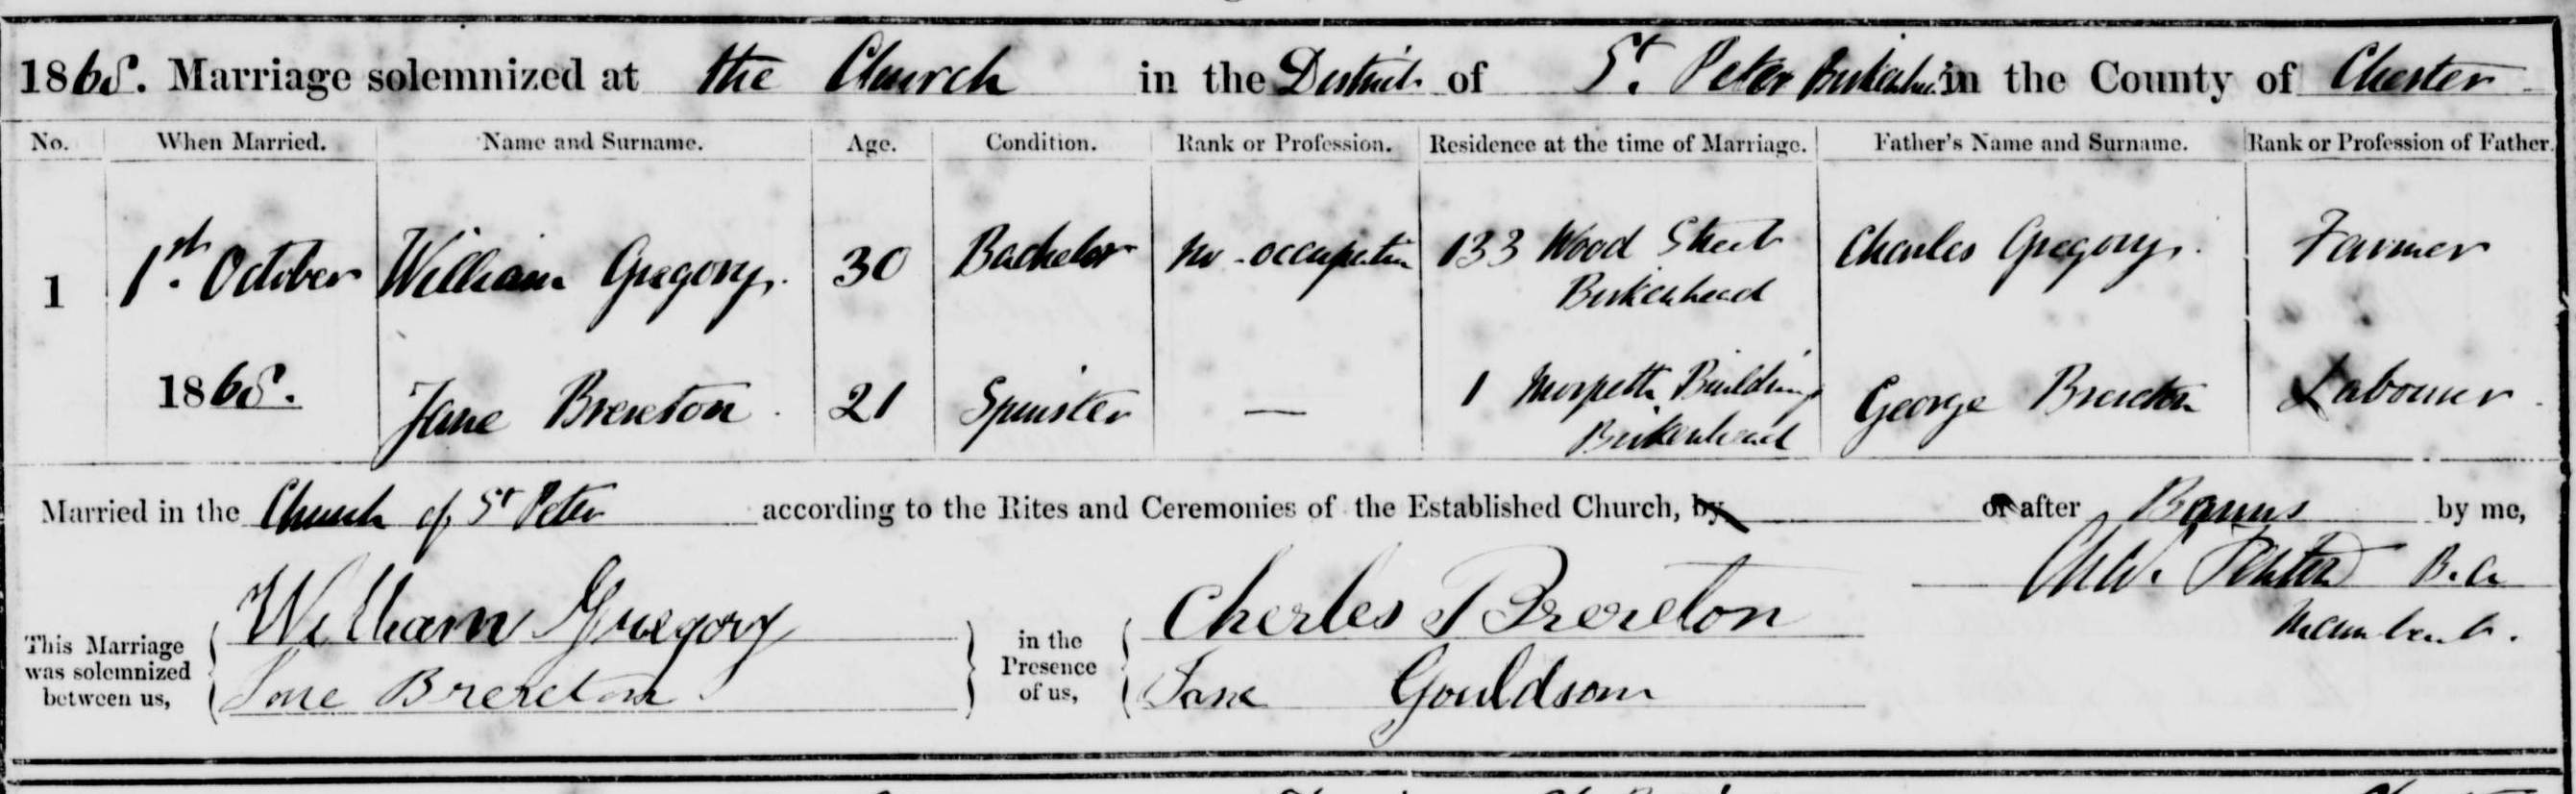 1868. Marriage solemnized at the Church in the District of St. Peter Birkenhead in the County of Chester
No. When Married. Name and Surname. Age. Condition. Rank or Profession. Residence at the time of Marriage. Father's Name and Surname. Rank or Profession of Father.
1 1st. October William Gregory. 30 Bachelor No occupation 133 Wood Street Birkenhead Charles Gregory. Farmer
1868. Jane Brereton. 21 Spinster — 1 Morpeth Buildings Birkenhead George Brereton Labourer.
Married in the Church of St Peter according to the Rites and Ceremonies of the Established Church, by or after Banns by me,
B.A.
Incumbent.
This Marriage was solemnized between us, William Gregory
Jane Brereton
in the Presence of us, Cherles Brereton
Jane Gouldson